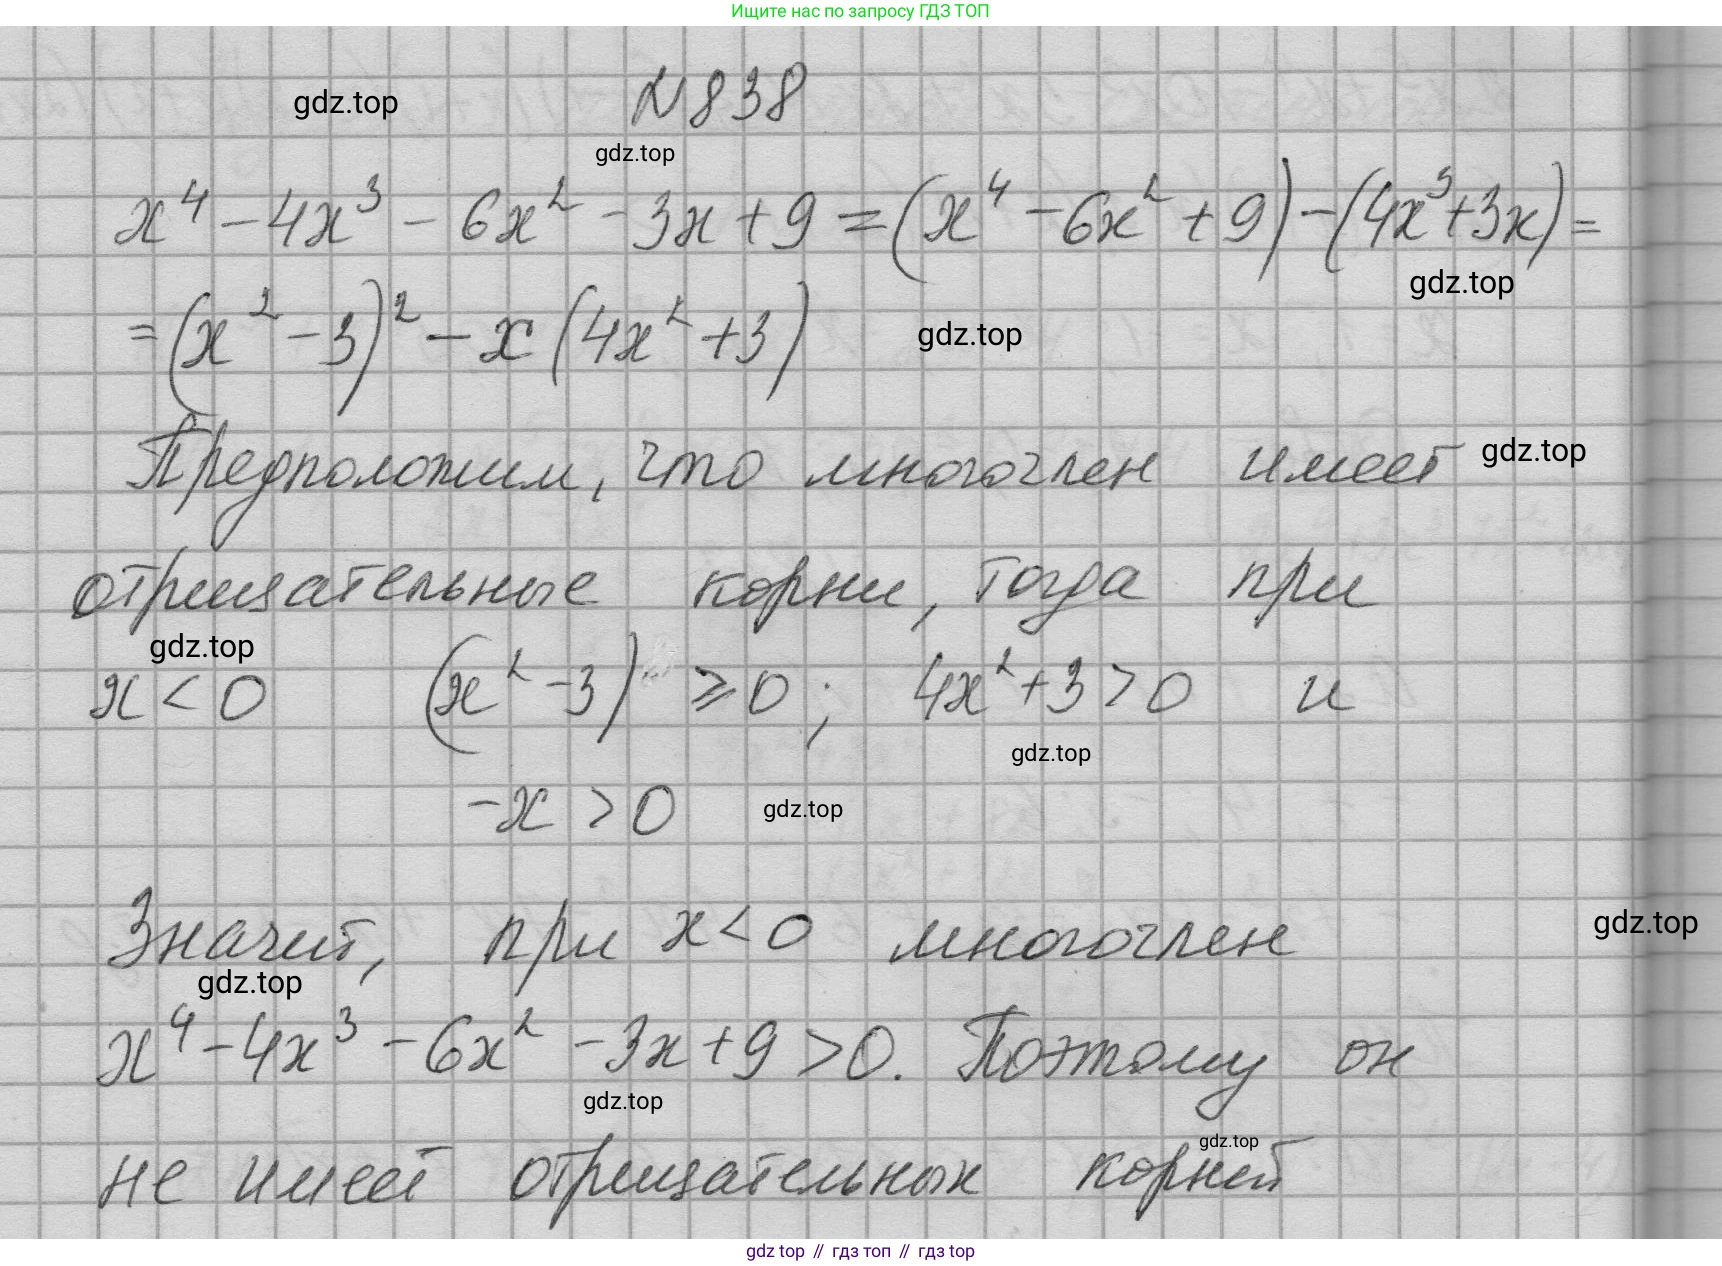 Ищите нас по запросу ГДЗ ТОП
№838
gdz.top
gdz.top
x⁴ - 4x³ - 6x² - 3x + 9 = (x⁴ - 6x² + 9) - (4x³ + 3x) =
gdz.top
= (x² - 3)² - x (4x² + 3)
gdz.top
Предположим, что многочлен имеет
gdz.top
отрицательные корни, тогда при
gdz.top
x < 0 (x² - 3) ≥ 0; 4x² + 3 > 0 и
gdz.top
-x > 0
gdz.top
Значит, при x < 0 многочлен
gdz.top
gdz.top
x⁴ - 4x³ - 6x² - 3x + 9 > 0. Поэтому он
gdz.top
gdz.top
не имеет отрицательных корней
gdz top // гдз топ // гдз top